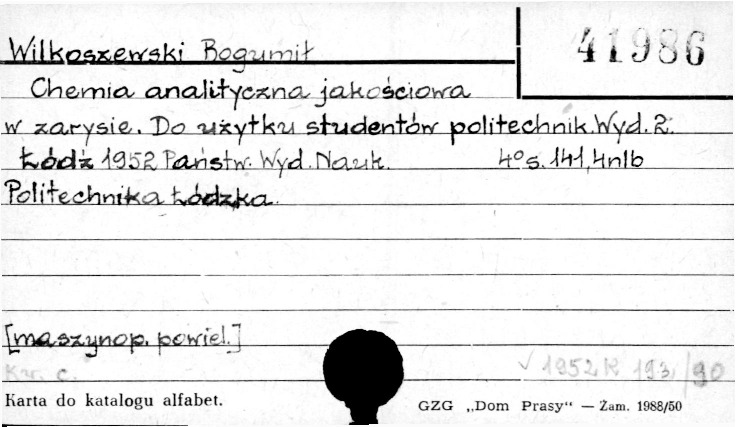 41986
Wilkoszewski Bogumił
Chemia analityczna jakościowa
w zarysie. Do użytku studentów politechnik. Wyd. 2.
Łódź 1952 Państw. Wyd. Nauk. 4° s. 141, 4nlb
Politechnika Łódzka.
[maszynop. powiel.]
√ 1952 K 193/90
Kw. c.
Karta do katalogu alfabet.
GZG „Dom Prasy“ — Zam. 1988/50